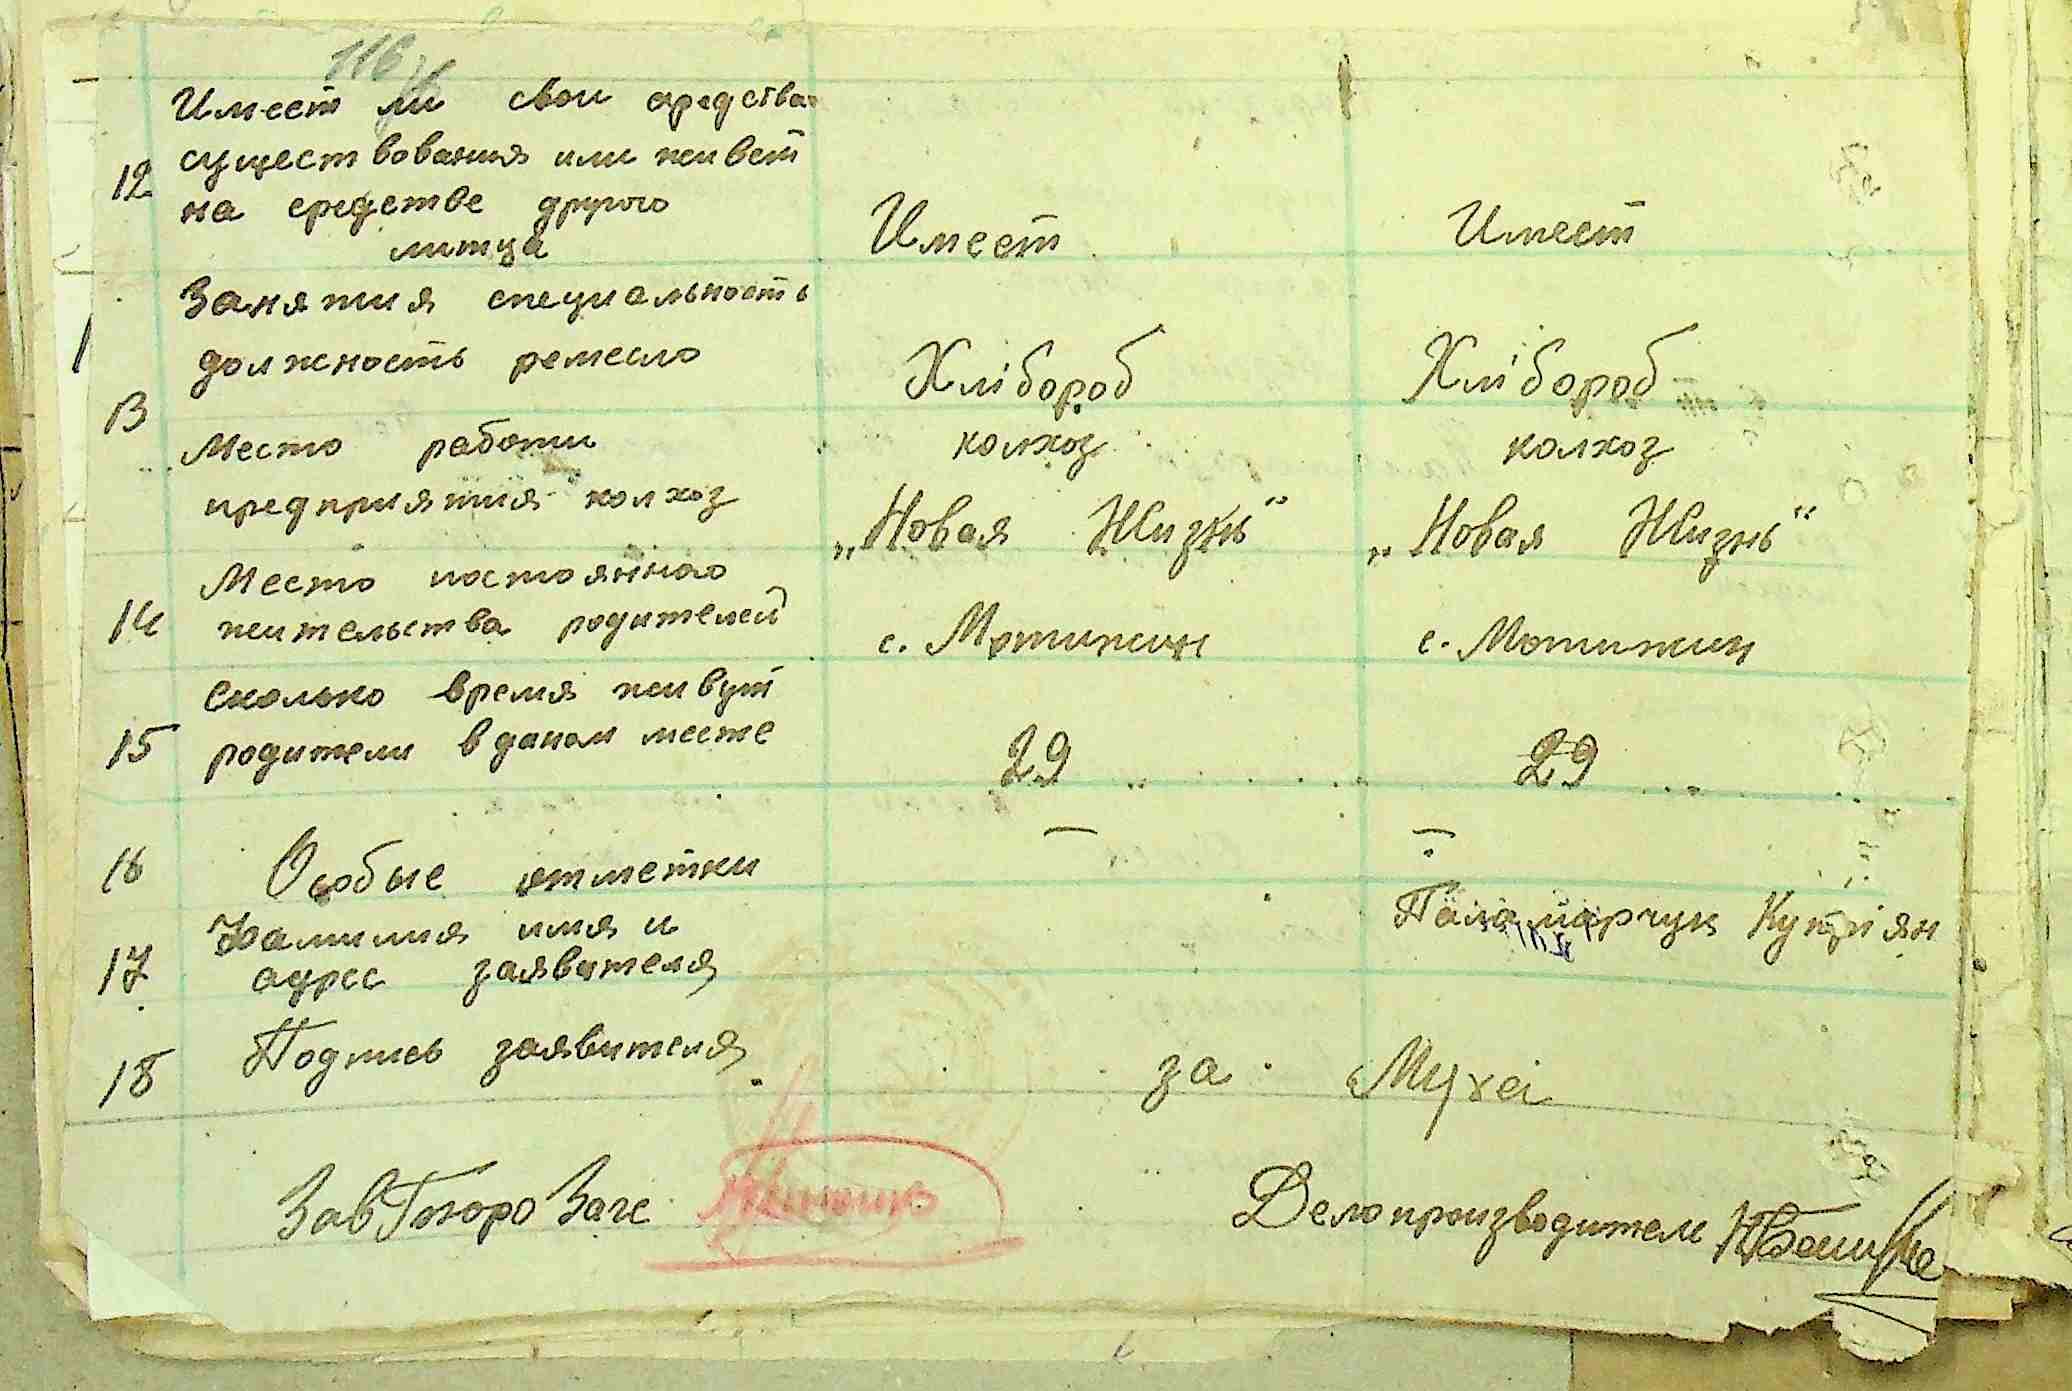 116
Имеет ли свои средства
существования или живет
12 на средстве другого
литца Имеет Имеет
Занятия специальность
должность ремесло Хлібороб Хлібороб
13
Место работи колхоз колхоз
предприятия колхоз „Новая Жизнь“ „Новая Жизнь“
Место постоянного
14 жительства родителей с. Мотижин с. Мотижин
Сколько время живут
15 родители в даном месте 29 29
16 Особые отметки — —
Фамилия имя и Паламарчук Купріян
17 адрес заявителя
18 Подпись заявителя за Муха
Зав Делопроизводитель